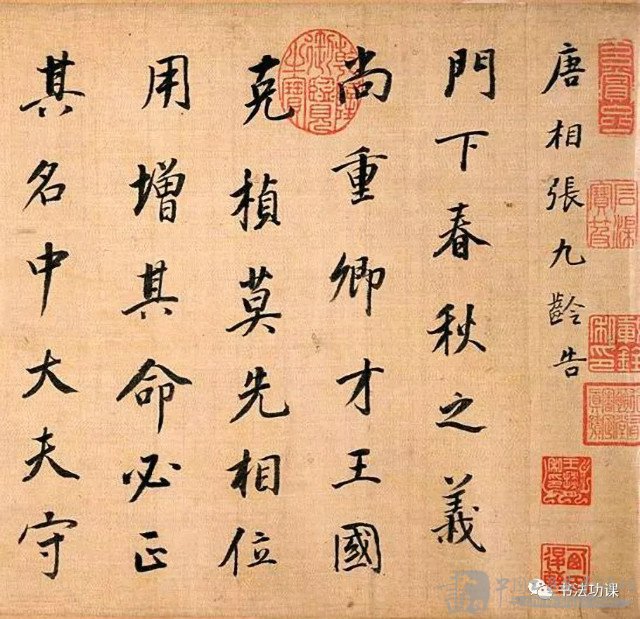 唐相張九齡告
門下春秋之義
尚重卿才王國
克楨莫先相位
用增其命必正
其名中大夫守
乾隆御覽之寶
石渠寶笈
书法功课